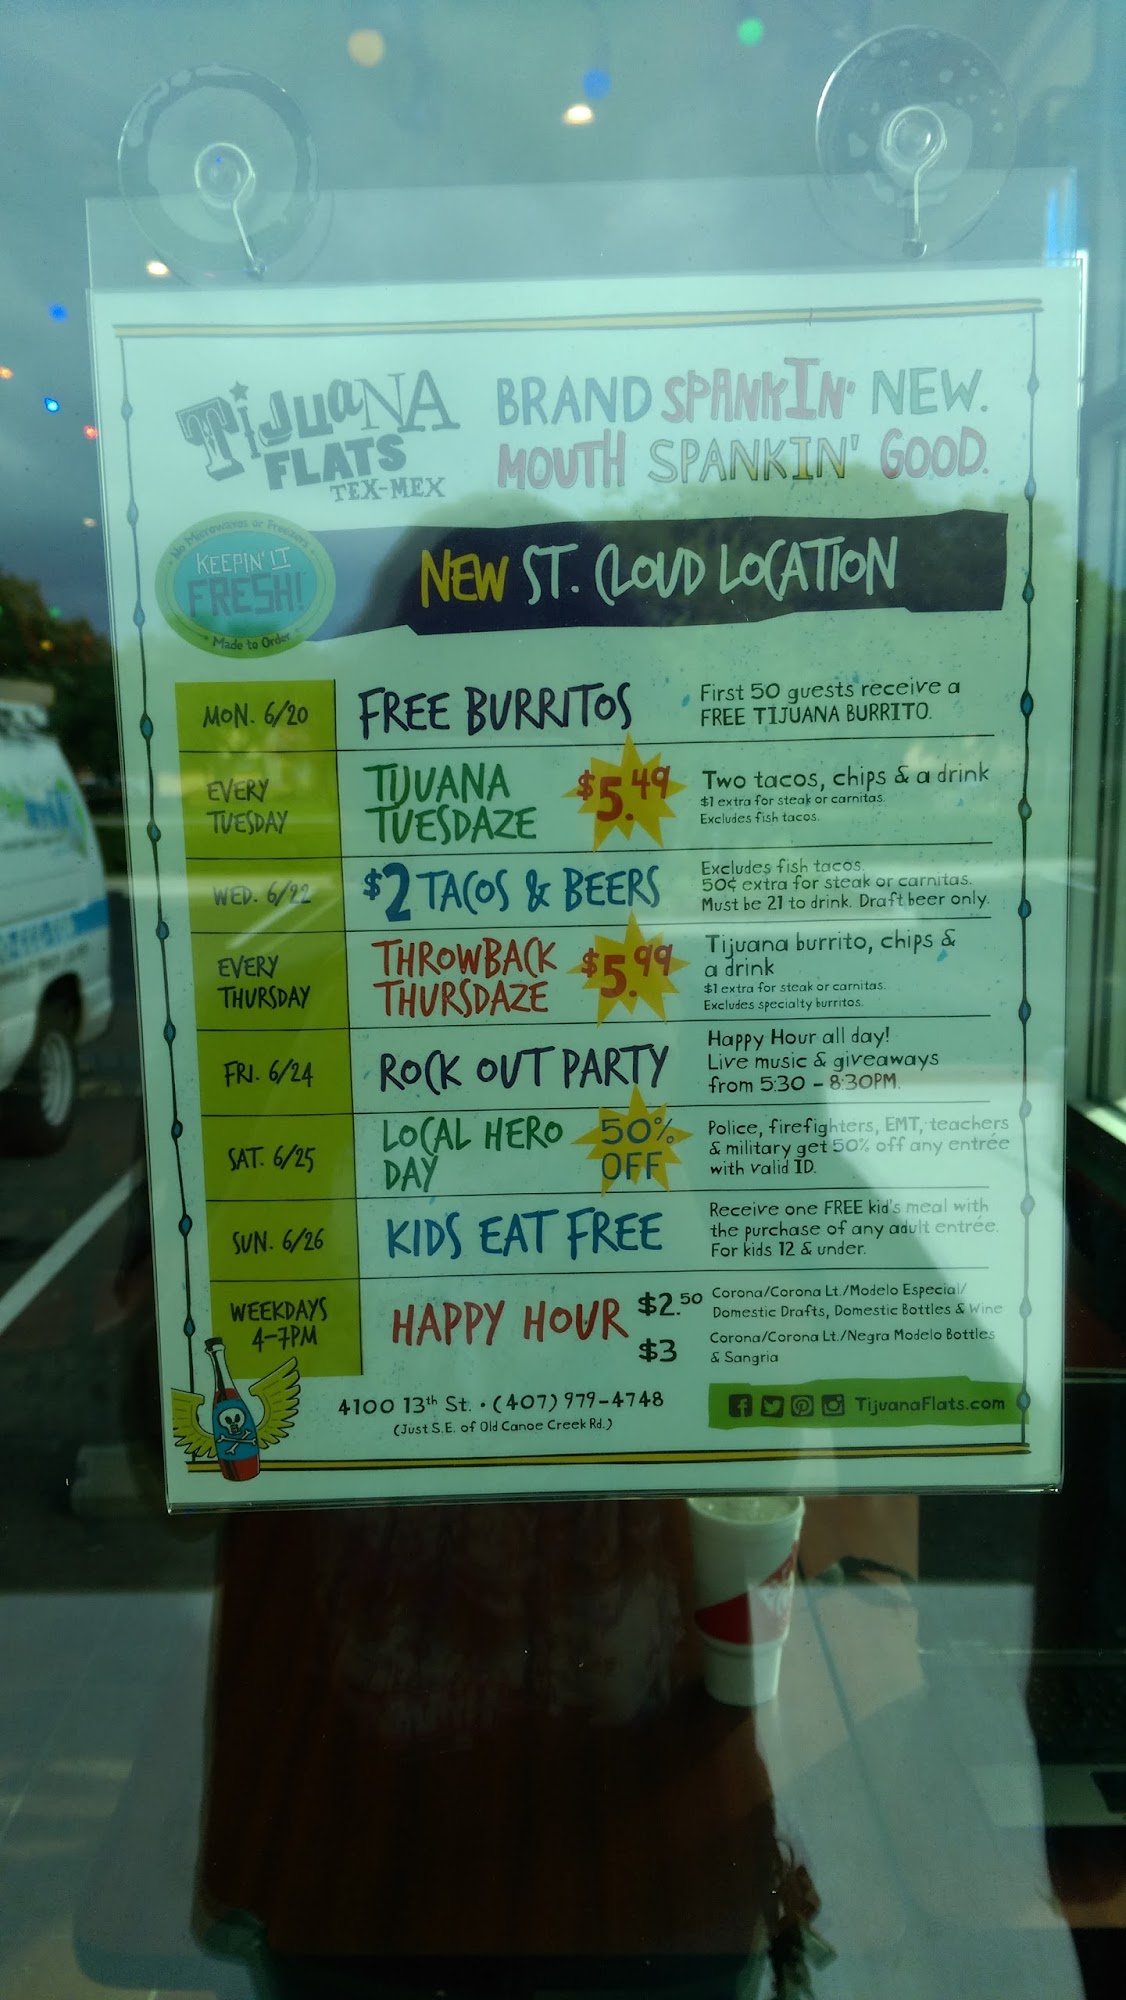 TIJUANA
FLATS
TEX-MEX
BRAND SPANKIN' NEW.
MOUTH SPANKIN' GOOD.
No Microwaves or Freezers
KEEPIN' IT
FRESH!
Made to Order
NEW ST. CLOUD LOCATION
MON. 6/20
FREE BURRITOS
First 50 guests receive a
FREE TIJUANA BURRITO.
EVERY
TUESDAY
TIJUANA
TUESDAZE
$5.49
Two tacos, chips & a drink
$1 extra for steak or carnitas.
Excludes fish tacos.
WED. 6/22
$2 TACOS & BEERS
Excludes fish tacos.
50¢ extra for steak or carnitas.
Must be 21 to drink. Draft beer only.
EVERY
THURSDAY
THROWBACK
THURSDAZE
$5.99
Tijuana burrito, chips &
a drink
$1 extra for steak or carnitas.
Excludes specialty burritos.
FRI. 6/24
ROCK OUT PARTY
Happy Hour all day!
Live music & giveaways
from 5:30 - 8:30PM.
SAT. 6/25
LOCAL HERO
DAY
50%
OFF
Police, firefighters, EMT, teachers
& military get 50% off any entrée
with valid ID.
SUN. 6/26
KIDS EAT FREE
Receive one FREE kid's meal with
the purchase of any adult entrée.
For kids 12 & under.
WEEKDAYS
4-7PM
HAPPY HOUR
$2.50
Corona/Corona Lt./Modelo Especial/
Domestic Drafts, Domestic Bottles & Wine
$3
Corona/Corona Lt./Negra Modelo Bottles
& Sangria
4100 13th St. • (407) 979-4748
(Just S.E. of Old Canoe Creek Rd.)
TijuanaFlats.com